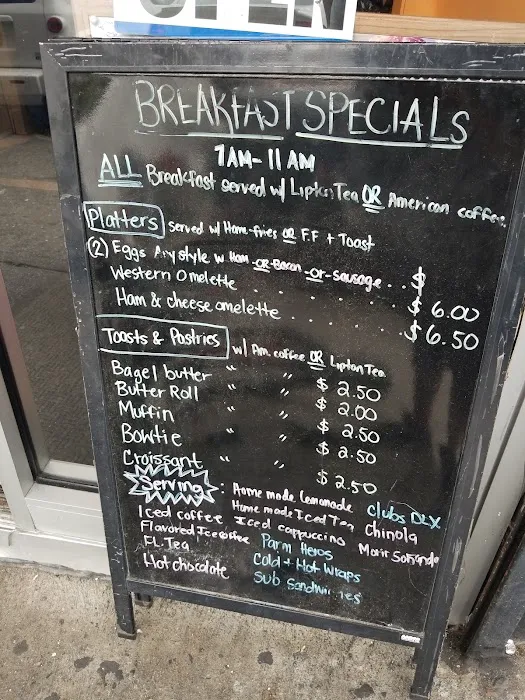 OPEN
BREAKFAST SPECIALS
7AM - 11 AM
ALL Breakfast served w/ Lipton Tea OR American coffee
Platters served w/ Ham-fries OR F.F + Toast
(2) Eggs Any style w Ham -OR- Bacon -or- sausage . . $
Western Omelette . . . . . $ 6.00
Ham & cheese omelette . . . . . $ 6.50
Toasts & Pastries w/ Am. coffee OR Lipton Tea
Bagel butter " " $ 2.50
Butter Roll " " $ 2.00
Muffin " " $ 2.50
Bowtie " " $ 2.50
Croissant " " $ 2.50
Serving: Home made Lemonade Clubs DLX
Iced coffee Home made Iced Tea Chinola
Flavored Ice coffee Iced cappuccino Morir Soñando
Fl. Tea Parm Heros
Hot chocolate Cold + Hot Wraps
Sub Sandwiches